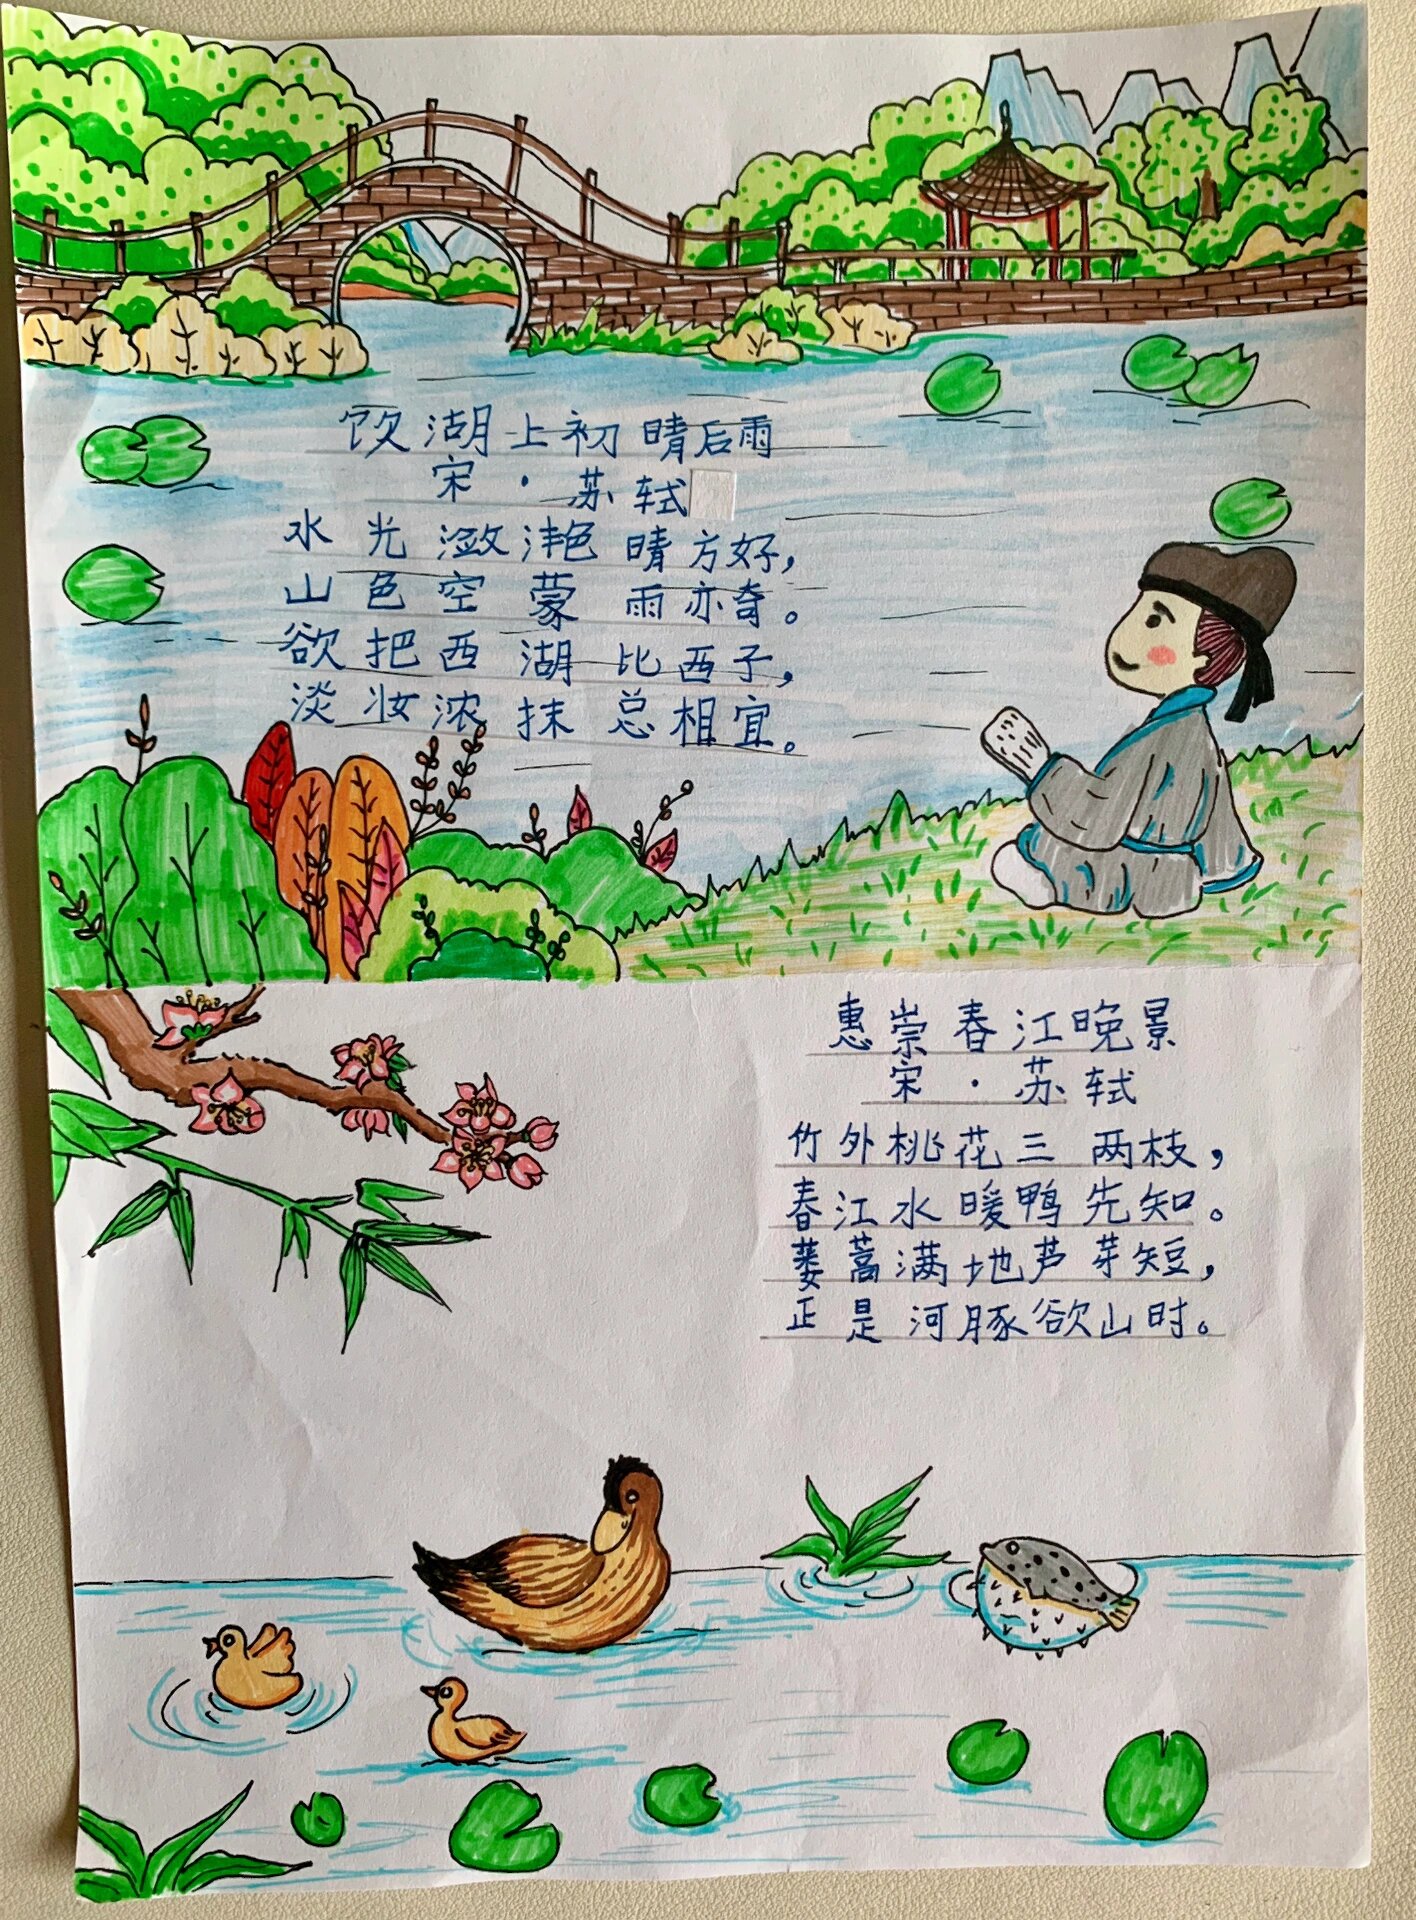 饮湖上初晴后雨
宋·苏轼
水光潋滟晴方好，
山色空蒙雨亦奇。
欲把西湖比西子，
淡妆浓抹总相宜。
惠崇春江晚景
宋·苏轼
竹外桃花三两枝，
春江水暖鸭先知。
蒌蒿满地芦芽短，
正是河豚欲山时。